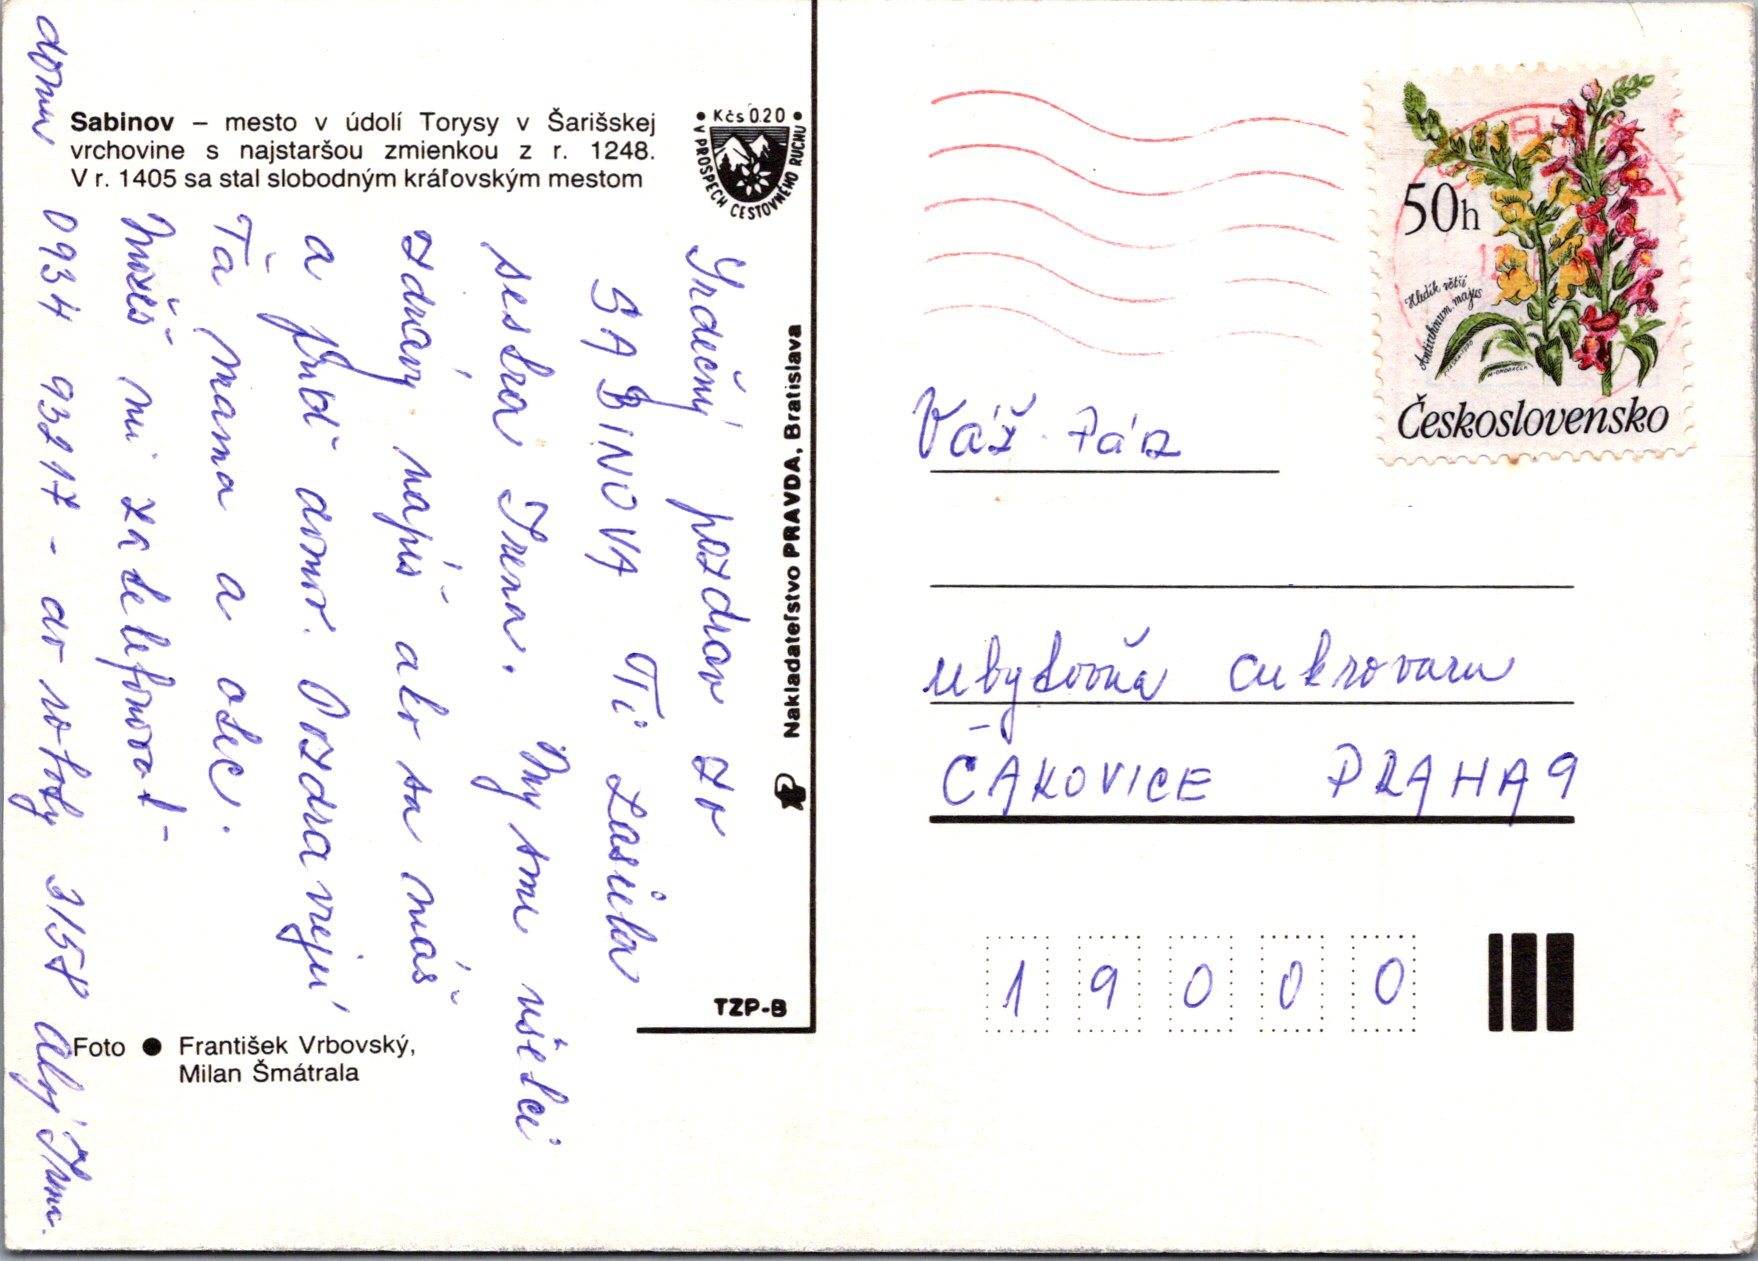 Sabinov – mesto v údolí Torysy v Šarišskej
vrchovine s najstaršou zmienkou z r. 1248.
V r. 1405 sa stal slobodným kráľovským mestom
• Kčs 0.20 •
V PROSPECH CESTOVNÉHO RUCHU
Srdečný pozdrav zo
SABINOVA Ti zasiela
sestra Irena. My sme všetci
zdravý napíš ako sa máš
a prídˇ domov. Pozdravujú
Ťa mama a otec.
Možeš mi zatelefonovať -
domov 0934 93217 - do roboty 3158 Ahoj Irena.
Nakladateľstvo PRAVDA, Bratislava
TZP-B
Foto ● František Vrbovský,
Milan Šmátrala
50h
Hledík větší
Antirrhinum majus
Československo
Váž. Pán
ubytovňa cukrovaru
ČAKOVICE PRAHA 9
19000